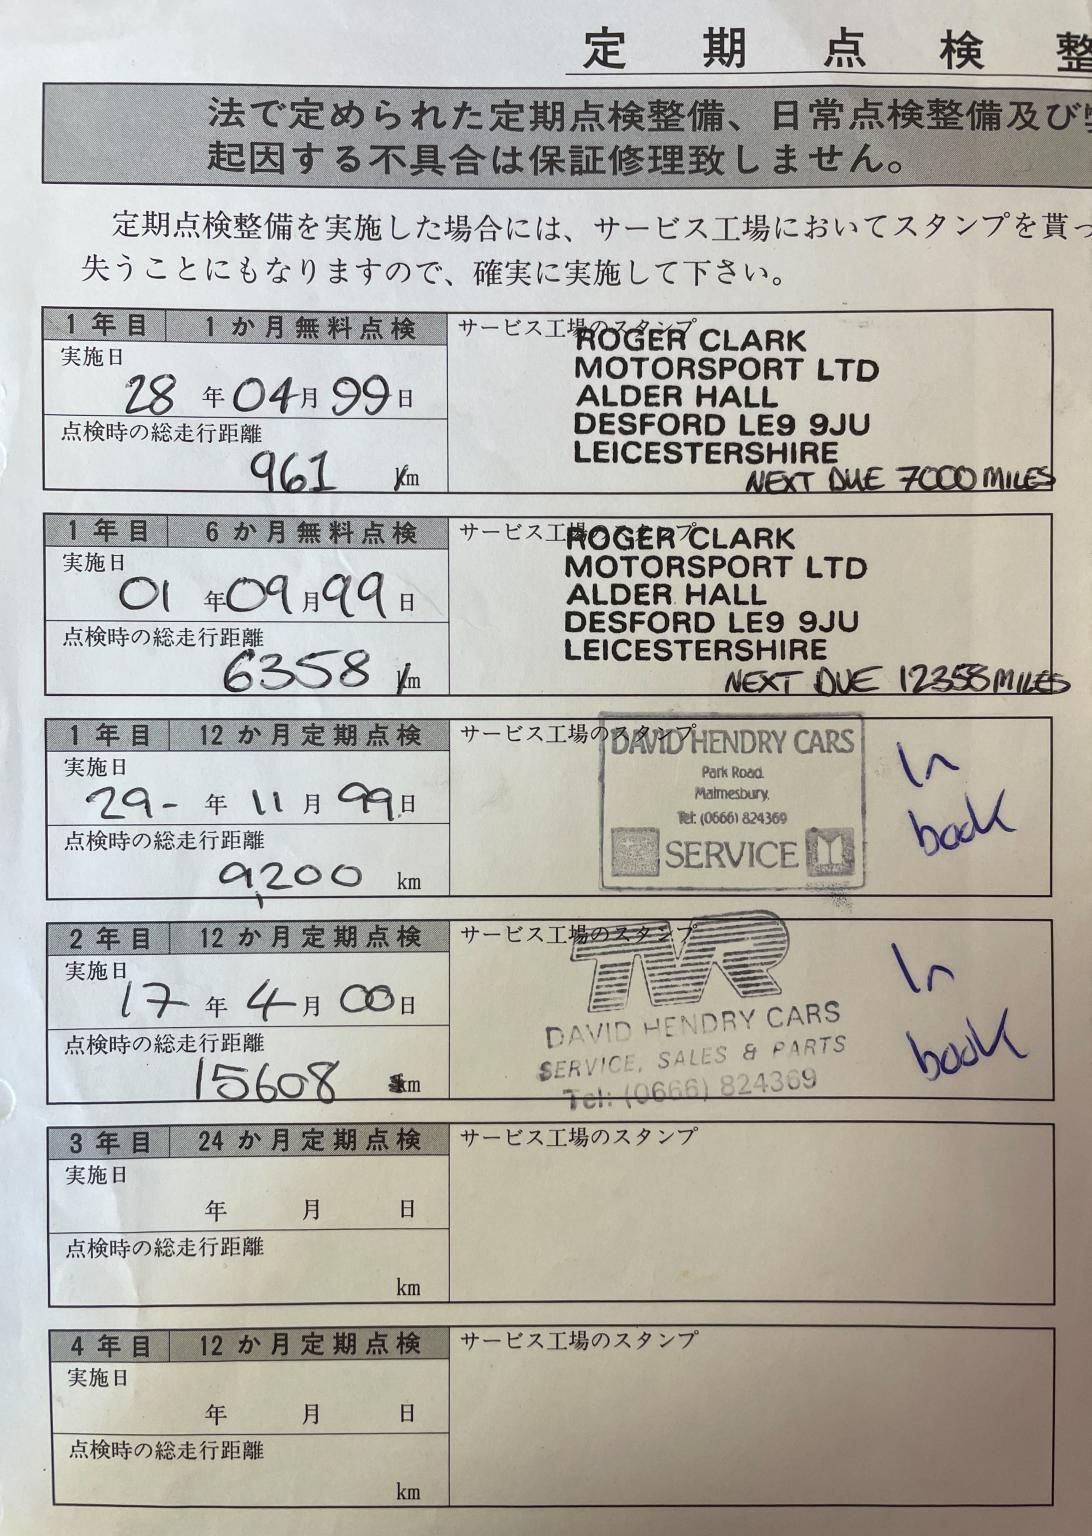 定期点検整
法で定められた定期点検整備、日常点検整備及び
起因する不具合は保証修理致しません。
定期点検整備を実施した場合には、サービス工場においてスタンプを貰っ
失うことにもなりますので、確実に実施して下さい。
1年目 1か月無料点検
サービス工場のスタンプ
実施日
28 年 04 月 99 日
点検時の総走行距離
961 km
ROGER CLARK
MOTORSPORT LTD
ALDER HALL
DESFORD LE9 9JU
LEICESTERSHIRE
NEXT DUE 7000 MILES
1年目 6か月無料点検
サービス工場のスタンプ
実施日
01 年 09 月 99 日
点検時の総走行距離
6358 km
ROGER CLARK
MOTORSPORT LTD
ALDER HALL
DESFORD LE9 9JU
LEICESTERSHIRE
NEXT DUE 12358 MILES
1年目 12か月定期点検
サービス工場のスタンプ
実施日
29- 年 11 月 99 日
点検時の総走行距離
9,200 km
DAVID HENDRY CARS
Park Road.
Malmesbury.
Tel: (0666) 824369
SERVICE
In
book
2年目 12か月定期点検
サービス工場のスタンプ
実施日
17 年 4 月 00 日
点検時の総走行距離
15608 km
TVR
DAVID HENDRY CARS
SERVICE, SALES & PARTS
Tel: (0666) 824369
In
book
3年目 24か月定期点検
サービス工場のスタンプ
実施日
年 月 日
点検時の総走行距離
km
4年目 12か月定期点検
サービス工場のスタンプ
実施日
年 月 日
点検時の総走行距離
km